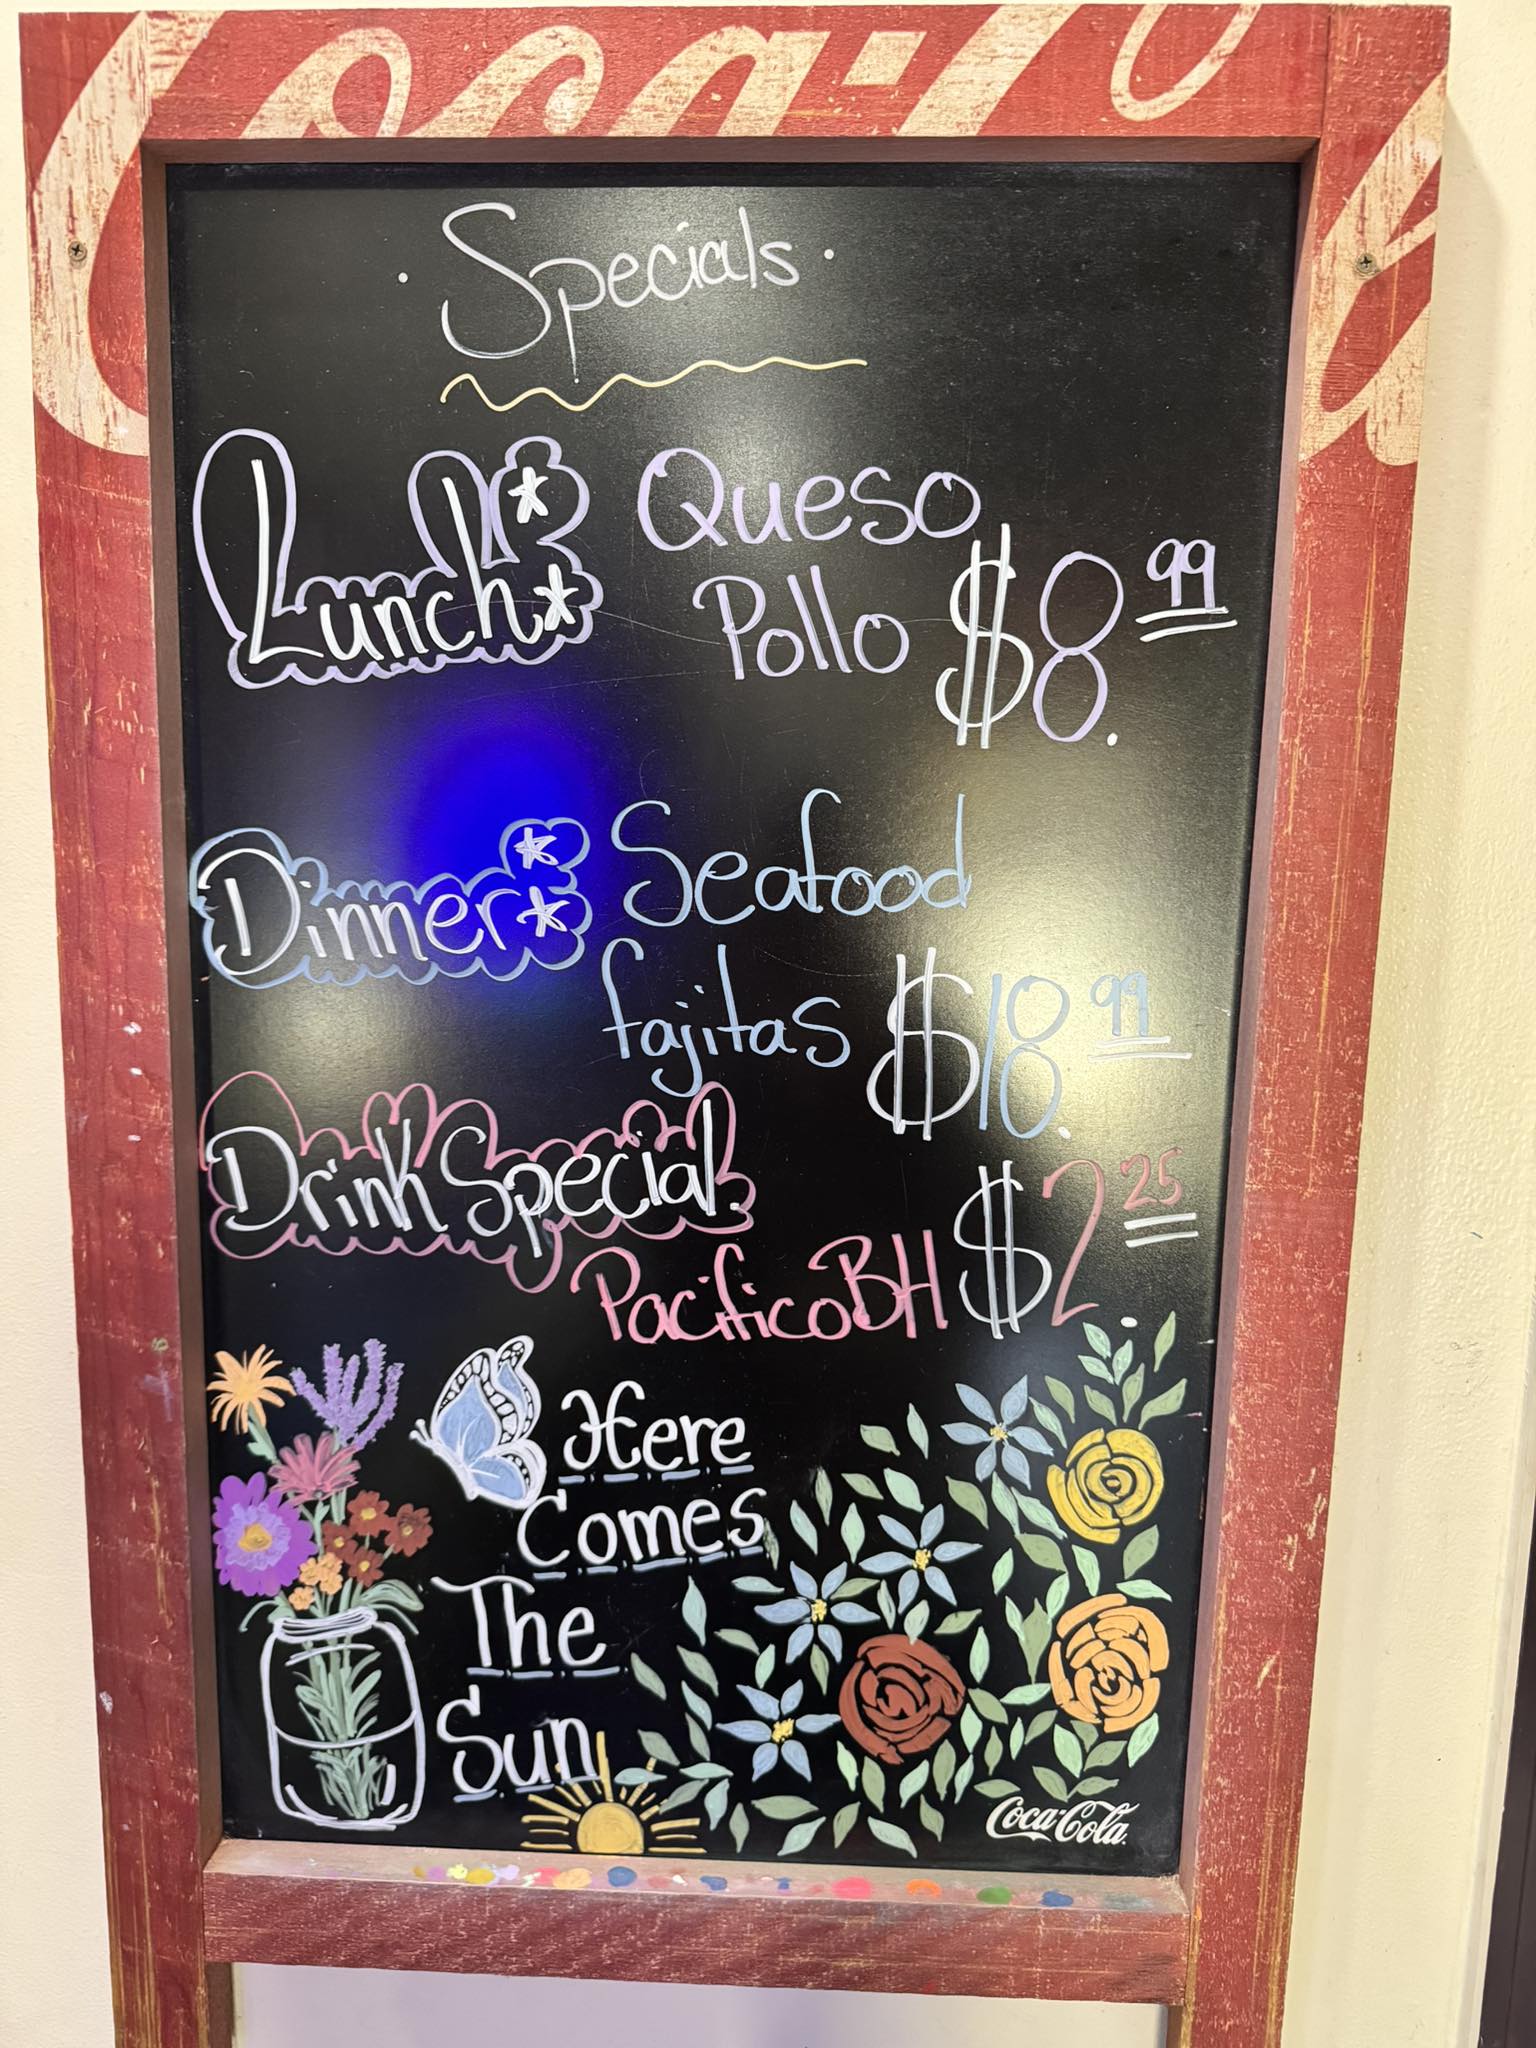 Coca-Cola
· Specials ·
Lunch** Queso
Pollo $8.99
Dinner** Seafood
fajitas $18.99
Drink Special.
Pacifico BH $2.25
Here
Comes
The
Sun
Coca-Cola